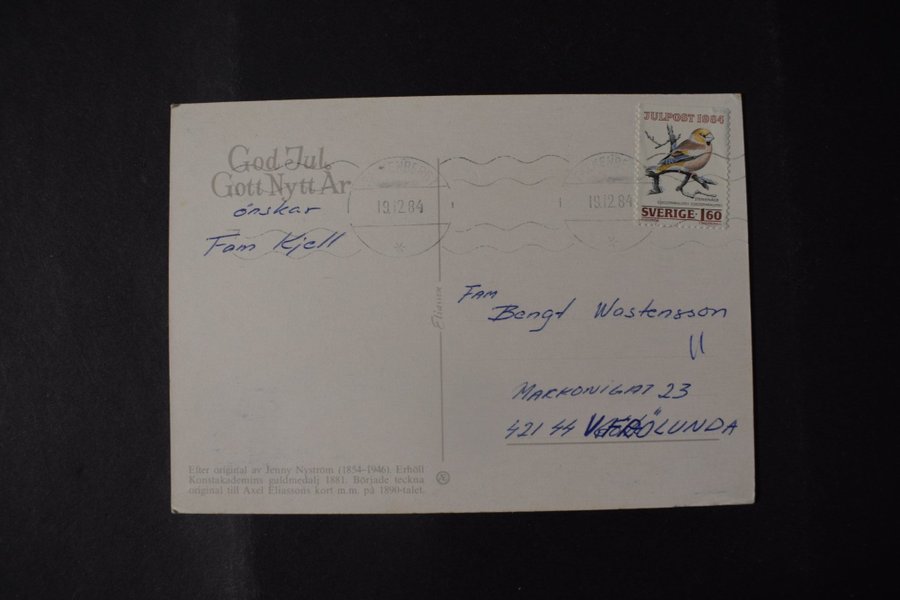 God Jul
Gott Nytt År
önskar
Fam Kjell
19.12.84
19.12.84
JULPOST 1984
STENKNÄCK
COCCOTHRAUSTES COCCOTHRAUSTES
SVERIGE·1.60
Eliasson
Fam
Bengt Wastensson
MARKONIGAT 23
421 44 V. FRÖLUNDA
Efter original av Jenny Nyström (1854–1946). Erhöll
Konstakademins guldmedalj 1881. Började teckna
original till Axel Eliassons kort m.m. på 1890-talet.